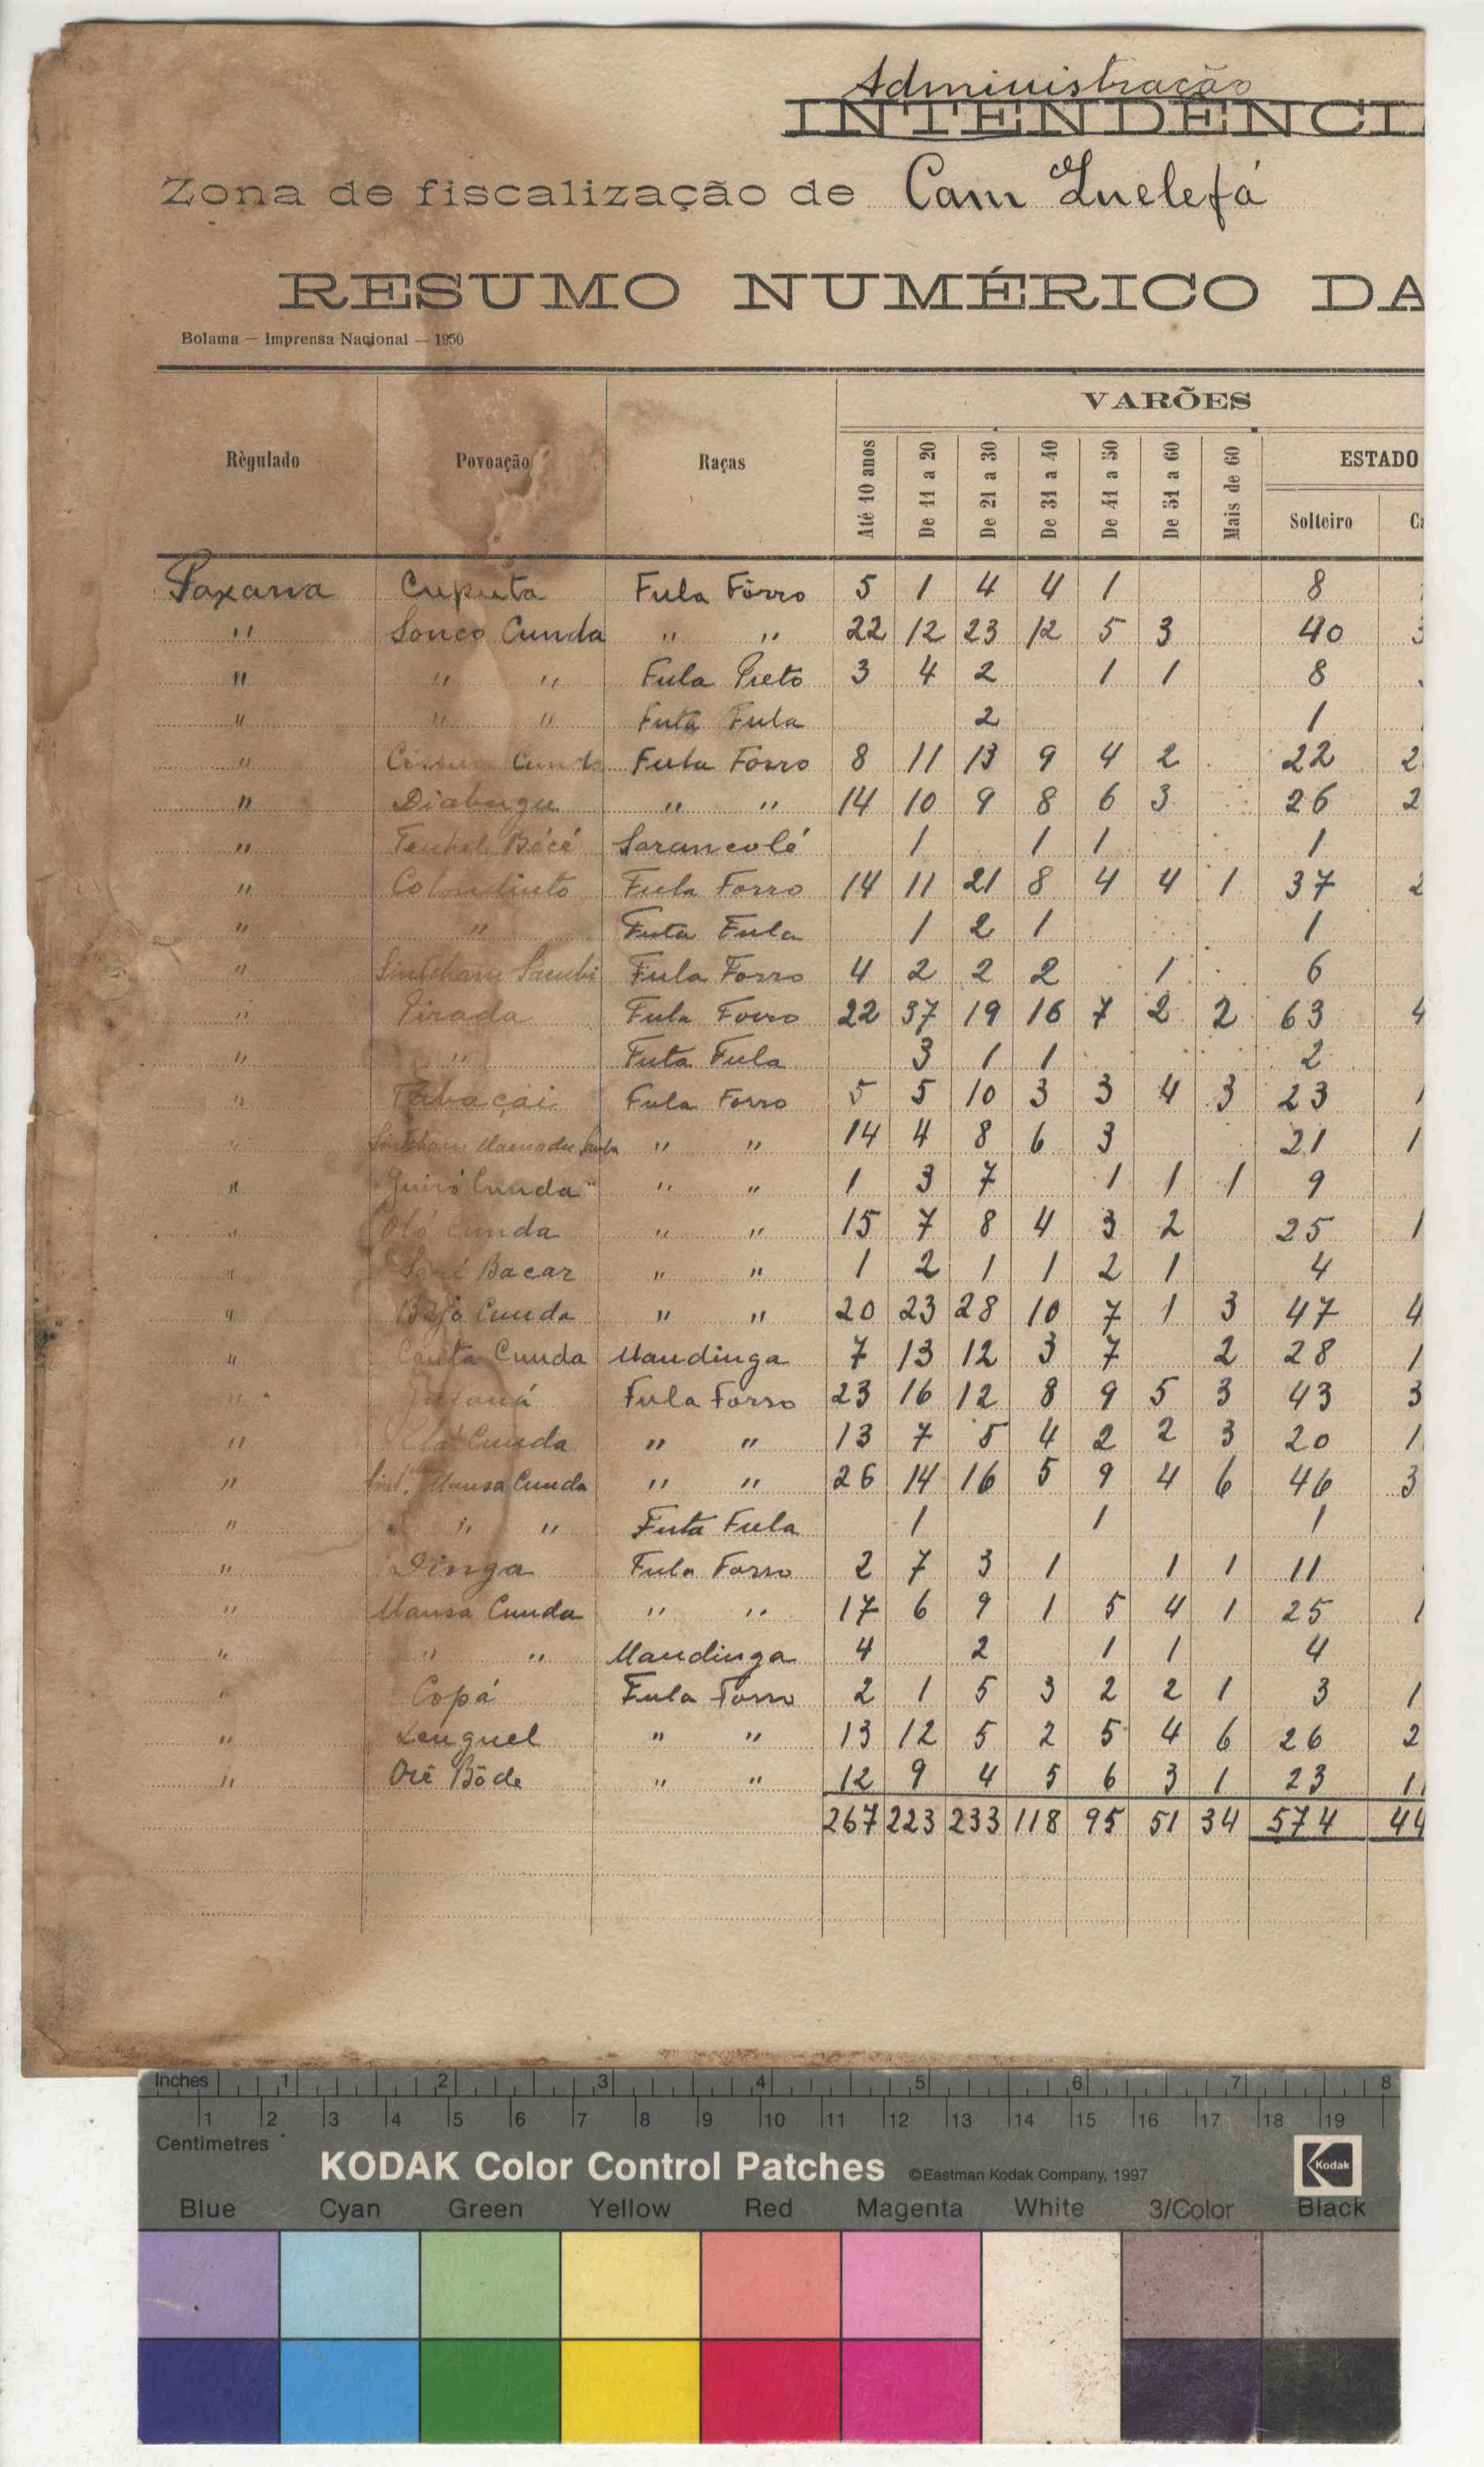 Administração
INTENDENCI
Zona de fiscalização de Cam Quelefá
RESUMO NUMÉRICO DA
Bolama — Imprensa Nacional — 1950
VARÕES
Règulado Povoação Raças Até 10 anos De 11 a 20 De 21 a 30 De 31 a 40 De 41 a 50 De 51 a 60 Mais de 60 ESTADO
Solteiro
Paxana Cuputa Fula Fôrro 5 1 4 4 1 8
" Sonco Cunda " " 22 12 23 12 5 3 40
" " " Fula Preto 3 4 2 1 1 8
" " " Futa Fula 2 1
" Fula Forro 8 11 13 9 4 2 22 2
" Diabugu " " 14 10 9 8 6 3 26 2
" Sarancolé 1 1 1 1
" Fula Forro 14 11 21 8 4 4 1 37 2
" " Futa Fula 1 2 1 1
" Sintcham Fula Forro 4 2 2 2 1 6
" Pirada Fula Forro 22 37 19 16 7 2 2 63 4
" " Futa Fula 3 1 1 2
" Tabaçai Fula Forro 5 5 10 3 3 4 3 23 1
" Sintcham Mamadu " " 14 4 8 6 3 21 1
" Cunda " " 1 3 7 1 1 1 9
" Cunda " " 15 7 8 4 3 2 25 1
" Saré Bacar " " 1 2 1 1 2 1 4
" Bajo Cunda " " 20 23 28 10 7 1 3 47 4
" Canta Cunda Mandinga 7 13 12 3 7 2 28 1
" Fula Forro 23 16 12 8 9 5 3 43 3
" Cunda " " 13 7 5 4 2 2 3 20 1
" Sint. Mansa Cunda " " 26 14 16 5 9 4 6 46 3
" " " Futa Fula 1 1 1
" Dinga Fula Forro 2 7 3 1 1 1 11
" Mansa Cunda " " 17 6 9 1 5 4 1 25 1
" " " Mandinga 4 2 1 1 4
" Copá Fula Forro 2 1 5 3 2 2 1 3 1
" Lenguel " " 13 12 5 2 5 4 6 26 2
" Orê Bôde " " 12 9 4 5 6 3 1 23 1
267 223 233 118 95 51 34 574 44
Inches 1 2 3 4 5 6 7 8
1 2 3 4 5 6 7 8 9 10 11 12 13 14 15 16 17 18 19
Centimetres
KODAK Color Control Patches ©Eastman Kodak Company, 1997 Kodak
Blue Cyan Green Yellow Red Magenta White 3/Color Black